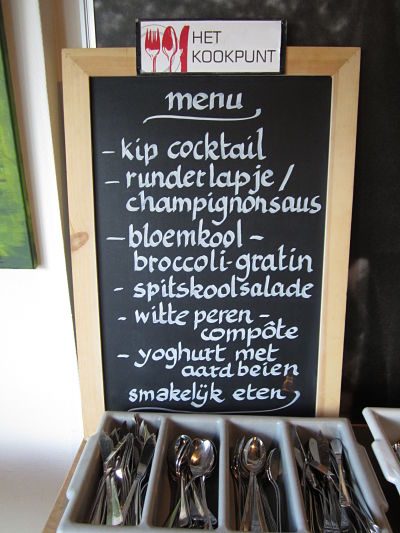 HET
KOOKPUNT
menu
- kip cocktail
- runderlapje /
champignonsaus
- bloemkool -
broccoli-gratin
- spitskoolsalade
- witte peren -
compôte
- yoghurt met
aardbeien
smakelijk eten